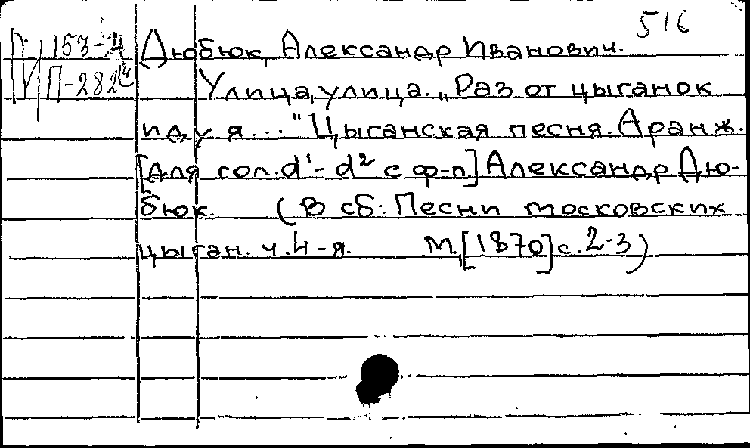 516
153-4 Дюбюк, Александр Иванович.
П-282 Улица, улица. „Раз от цыганок
иду я..." Цыганская песня. Аранж.
[для гол. d¹-d² с ф-п.] Александр Дю-
бюк. (В сб: Песни московских
цыган. ч. 4-я. М, [1870] с. 2-3)